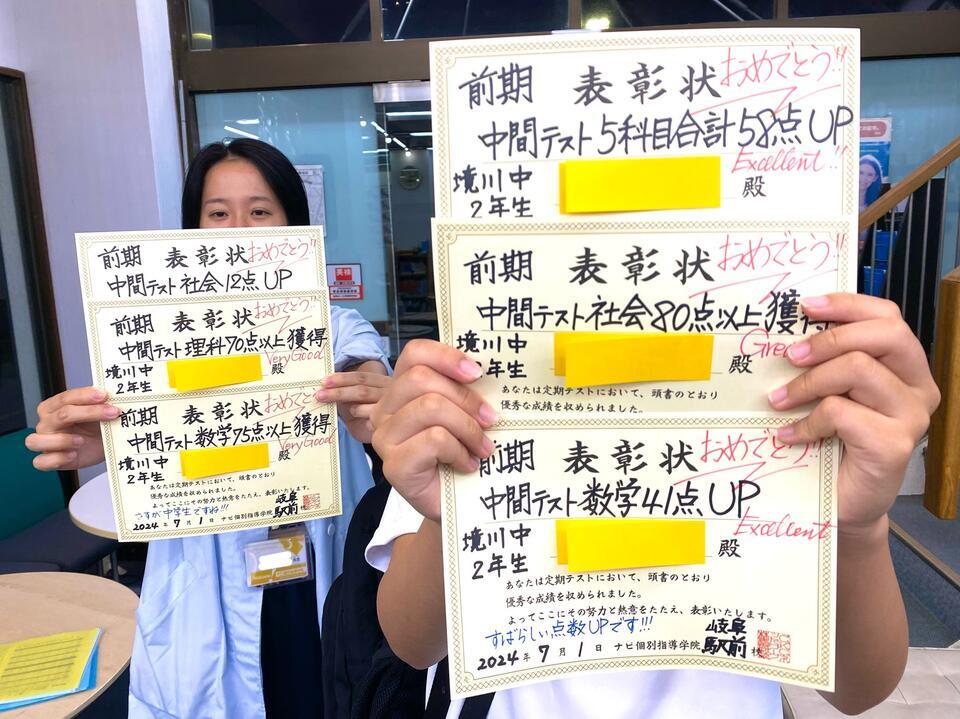 前期 表彰状 おめでとう!!
中間テスト 社会 12点 UP
前期 表彰状 おめでとう!!
中間テスト 理科 70点以上 獲得
境川中
2年生
殿
Very Good
前期 表彰状 おめでとう!!
中間テスト 数学 75点以上 獲得
境川中
2年生
殿
Very Good
あなたは定期テストにおいて、頭書のとおり
優秀な成績を収められました。
よってここにその努力と熱意をたたえ、表彰いたします。
さすが中学生ですね!!!
2024年 7月 1日 ナビ個別指導学院 岐阜駅前校
前期 表彰状 おめでとう!!
中間テスト 5科目合計 58点 UP
Excellent!!
境川中
2年生
殿
前期 表彰状 おめでとう!!
中間テスト 社会 80点以上 獲得
境川中
2年生
殿
あなたは定期テストにおいて、頭書のとおり
優秀な成績を収められました。
前期 表彰状 おめでとう!!
中間テスト 数学 41点 UP
Excellent
境川中
2年生
殿
あなたは定期テストにおいて、頭書のとおり
優秀な成績を収められました。
よってここにその努力と熱意をたたえ、表彰いたします。
すばらしい点数UPです!!!
2024年 7月 1日 ナビ個別指導学院 岐阜駅前校
英検